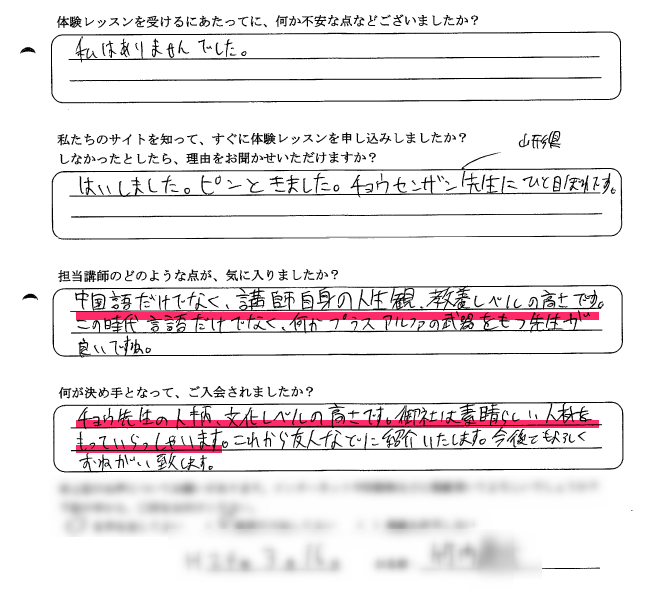 体験レッスンを受けるにあたってに、何か不安な点などございましたか？
私はありませんでした。
私たちのサイトを知って、すぐに体験レッスンを申し込みしましたか？
しなかったとしたら、理由をお聞かせいただけますか？
山形県
はいしました。ピンときました。チョウセンザン先生にひと目ぼれです。
担当講師のどのような点が、気に入りましたか？
中国語だけでなく、講師自身の人生観、教養レベルの高さです。
この時代言語だけでなく、何かプラスアルファの武器をもつ先生が
良いですね。
何が決め手となって、ご入会されましたか？
チョウ先生の人柄、文化レベルの高さです。御社は素晴らしい人材を
もっていらっしゃいます。これから友人などに紹介いたします。今後ともよろしく
おねがい致します。